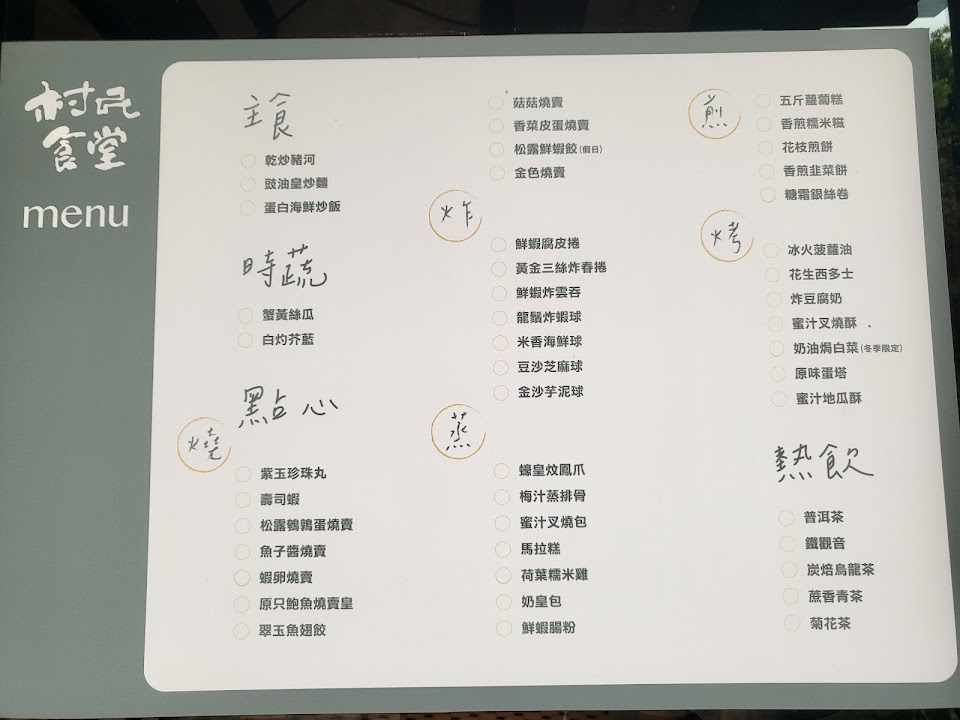 村民
食堂
menu
主食
乾炒豬河
豉油皇炒麵
蛋白海鮮炒飯
時蔬
蟹黃絲瓜
白灼芥藍
點心
燒
紫玉珍珠丸
壽司蝦
松露鵪鶉蛋燒賣
魚子醬燒賣
蝦卵燒賣
原只鮑魚燒賣皇
翠玉魚翅餃
菇菇燒賣
香菜皮蛋燒賣
松露鮮蝦餃(假日)
金色燒賣
炸
鮮蝦腐皮捲
黃金三絲炸春捲
鮮蝦炸雲吞
龍鬚炸蝦球
米香海鮮球
豆沙芝麻球
金沙芋泥球
蒸
蠔皇炆鳳爪
梅汁蒸排骨
蜜汁叉燒包
馬拉糕
荷葉糯米雞
奶皇包
鮮蝦腸粉
煎
五斤蘿蔔糕
香煎糯米糍
花枝煎餅
香煎韭菜餅
糖霜銀絲卷
烤
冰火菠蘿油
花生西多士
炸豆腐奶
蜜汁叉燒酥
奶油焗白菜(冬季限定)
原味蛋塔
蜜汁地瓜酥
熱飲
普洱茶
鐵觀音
炭焙烏龍茶
蔗香青茶
菊花茶